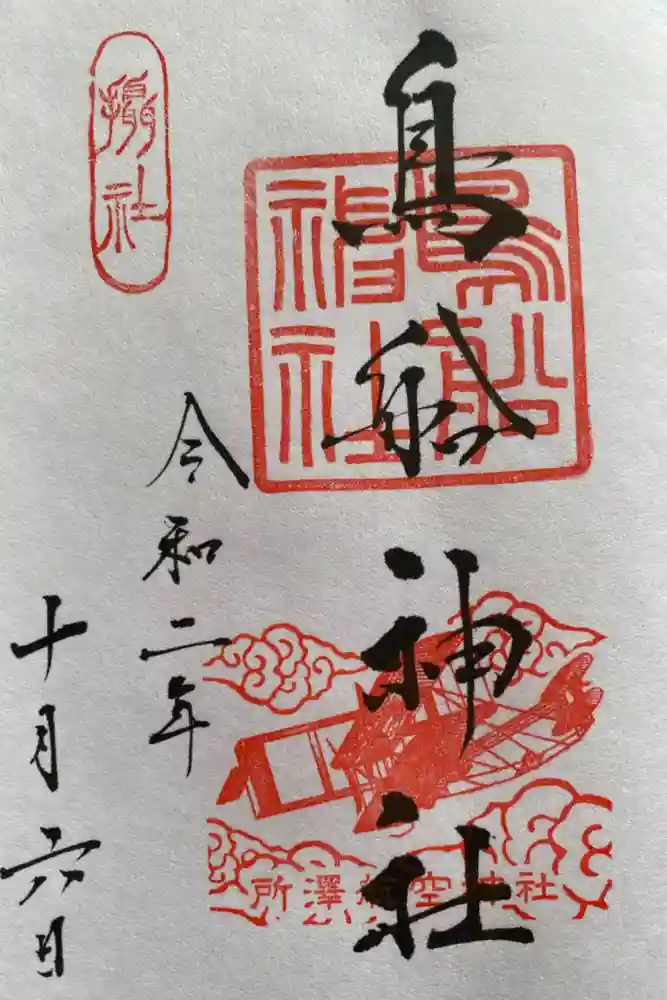 鳥船神社
鳥船
神社
所澤航空神社
攝社
令和二年
十月六日